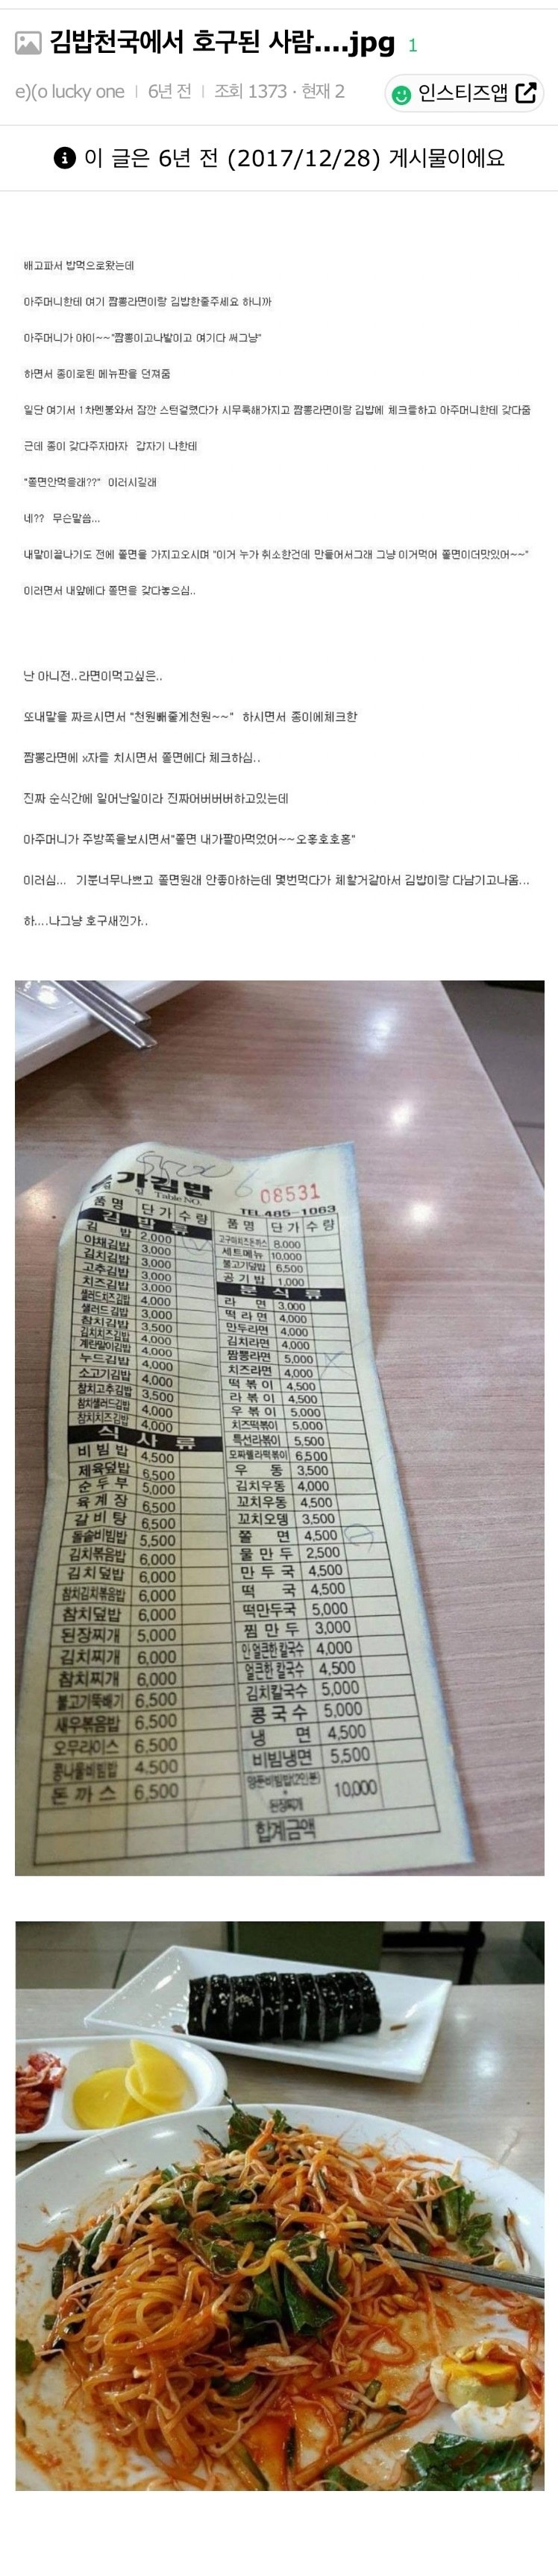 김밥천국에서 호구된 사람....jpg 1
e)(o lucky one | 6년 전 | 조회 1373 · 현재 2
인스티즈앱
이 글은 6년 전 (2017/12/28) 게시물이에요
배고파서 밥먹으로왔는데
아주머니한테 여기 짬뽕라면이랑 김밥한줄주세요 하니까
아주머니가 아이~~"짬뽕이고나발이고 여기다 써그냥"
하면서 종이로된 메뉴판을 던져줌
일단 여기서 1차멘붕와서 잠깐 스턴걸렸다가 시무룩해가지고 짬뽕라면이랑 김밥에 체크를하고 아주머니한테 갖다줌
근데 종이 갖다주자마자 갑자기 나한테
"쫄면안먹을래??" 이러시길래
네?? 무슨말씀...
내말이끝나기도 전에 쫄면을 가지고오시며 "이거 누가 취소한건데 만들어서그래 그냥 이거먹어 쫄면이더맛있어~~"
이러면서 내앞에다 쫄면을 갖다놓으심..
난 아니전..라면이먹고싶은..
또내말을 짜르시면서 "천원빼줄게천원~~" 하시면서 종이에체크한
짬뽕라면에 x자를 치시면서 쫄면에다 체크하심..
진짜 순식간에 일어난일이라 진짜어버버버하고있는데
아주머니가 주방쪽을보시면서"쫄면 내가팔아먹었어~~오홍호호홍"
이러심... 기분너무나쁘고 쫄면원래 안좋아하는데 몇번먹다가 체할거같아서 김밥이랑 다남기고나옴...
하....나그냥 호구새낀가..
가김밥
Table NO. 6
08531
TEL 485-1063
품명 단가 수량
김밥류
김밥 2,000
야채김밥 3,000
김치김밥 3,000
고추김밥 3,000
치즈김밥 3,000
샐러드치즈김밥 4,000
샐러드김밥 3,000
참치김밥 3,500
김치치즈김밥 4,000
계란말이김밥 4,000
누드김밥 4,000
소고기김밥 4,000
참치고추김밥 3,500
참치샐러드김밥 4,000
참치치즈김밥 4,000
식사류
비빔밥 4,500
제육덮밥 6,500
순두부 5,000
육계장 6,500
갈비탕 6,500
돌솥비빔밥 5,500
김치볶음밥 6,000
김치덮밥 6,000
참치김치볶음밥 6,000
참치덮밥 6,000
된장찌개 5,000
김치찌개 6,000
참치찌개 6,000
불고기뚝배기 6,500
새우볶음밥 6,500
오무라이스 6,500
콩나물비빔밥 4,500
돈까스 6,500
품명 단가 수량
고구마치즈돈까스 8,000
세트메뉴 10,000
불고기덮밥 6,500
공기밥 1,000
분식류
라면 3,000
떡라면 4,000
만두라면 4,000
김치라면 4,000
짬뽕라면 5,000
치즈라면 4,000
떡볶이 4,500
라볶이 4,500
우볶이 5,000
치즈떡볶이 5,000
특선라볶이 5,500
모짜렐라떡볶이 6,500
우동 3,500
김치우동 4,000
꼬치우동 4,500
꼬치오뎅 3,500
쫄면 4,500
물만두 2,500
만두국 4,500
떡국 4,500
떡만두국 5,000
찜만두 3,000
안얼큰한칼국수 4,000
얼큰한칼국수 4,500
김치칼국수 5,000
콩국수 5,000
냉면 4,500
비빔냉면 5,500
양푼비빔밥(2인분)
+
된장찌개 10,000
합계금액